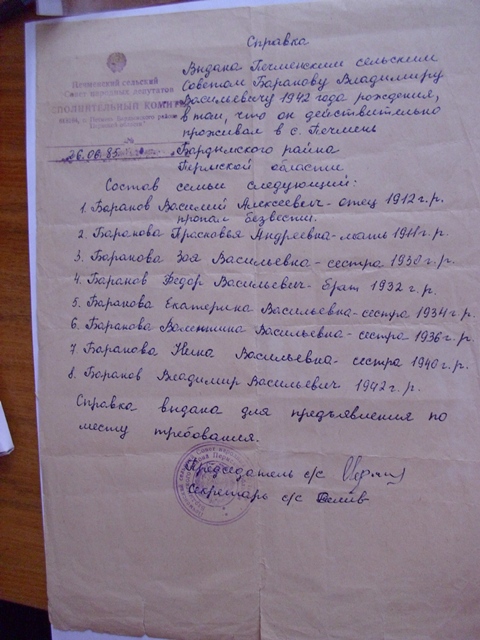 Справка
Печменский сельский
Совет народных депутатов
ИСПОЛНИТЕЛЬНЫЙ КОМИТЕТ
26.06.85
Выдана Печменским сельским
Советом Баранову Владимиру
Васильевичу 1942 года рождения,
в том, что он действительно
проживал в с. Печмень
Бардымского района
Пермской области
Состав семьи следующий:
1. Баранов Василий Алексеевич - отец 1912 г.р.
пропал безвести.
2. Баранова Прасковья Андреевна - мать 1911 г.р.
3. Баранова Зоя Васильевна - сестра 1930 г.р.
4. Баранов Федор Васильевич - брат 1932 г.р.
5. Баранова Екатерина Васильевна - сестра 1934 г.р.
6. Баранова Валентина Васильевна - сестра 1936 г.р.
7. Баранова Нина Васильевна - сестра 1940 г.р.
8. Баранов Владимир Васильевич 1942 г.р.
Справка выдана для предъявления по
месту требования.
Председатель с/с
Секретарь с/с